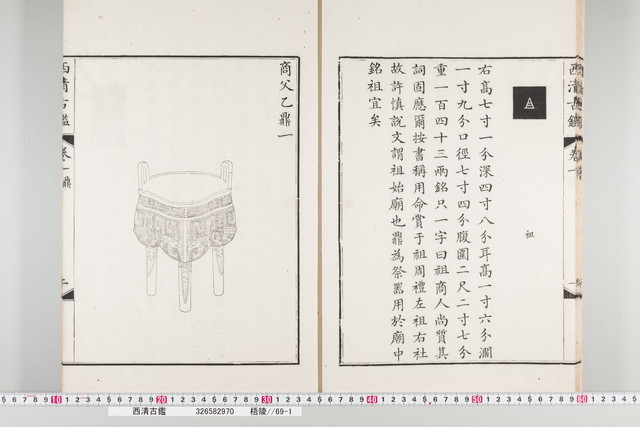 祖
右高七寸一分深四寸八分耳高一寸六分濶
一寸九分口徑七寸四分腹圍二尺二寸七分
重一百四十三兩銘只一字曰祖商人尚質其
詞固應爾按書稱用命賞于祖周禮左祖右社
故許慎說文謂祖始廟也鼎為祭器用於廟中
銘祖宜矣
西清古鑑 卷一
商父乙鼎一
西清古鑑 卷一 鼎
10 20 30 40 50 60
西清古鑑 326582970 梧陵//69-1